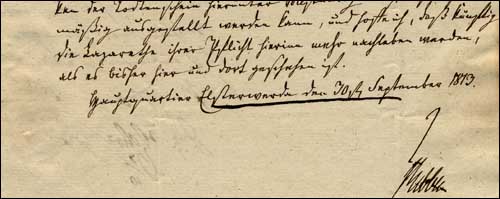 ken der Todtenschein hierunter
mäßig ausgestellt werden kann, und hoffe ich, daß künftig
die Lazarethe ihrer Pflicht hierin mehr nachleben werden,
als es bisher hier und dort geschehen ist.
Hauptquartier Elsterwerda den 30st September 1813.